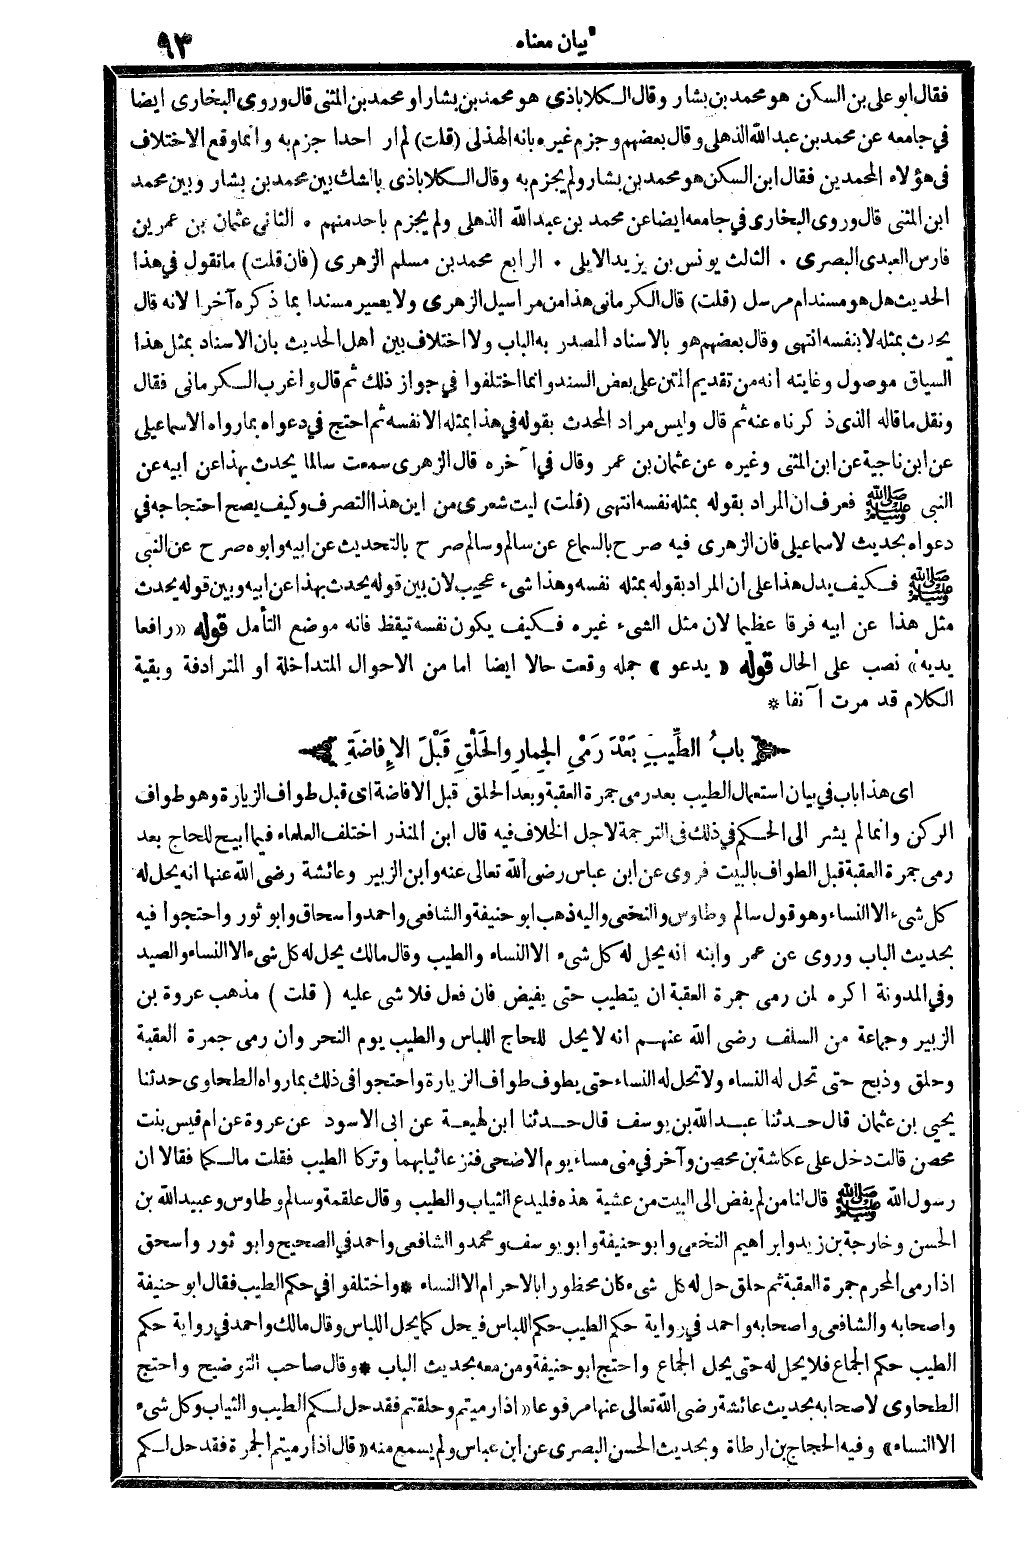 بيان معناه
٩٣
فقال ابو على بن السكن هو محمد بن بشار وقال الكلاباذى هو محمد بن بشار او محمد بن المثنى قال وروى البخارى ايضا
في جامعه عن محمد بن عبد الله الذهلى وقال بعضهم وجزم غيره بانه الهذلى (قلت) لم ار احدا جزم به وانما وقع الاختلاف
فى هؤلاء المحمدين فقال ابن السكن هو محمد بن بشار ولم يجزم به وقال الكلاباذى بالشك بين محمد بن بشار وبين محمد
ابن المثنى قال وروى البخارى في جامعه ايضا عن محمد بن عبد الله الذهلى ولم يجزم باحد منهم ٠ الثانى عثمان بن عمر بن
فارس العبدى البصرى ٠ الثالث يونس بن يزيد الايلى ٠ الرابع محمد بن مسلم الزهرى (فان قلت) ما تقول في هذا
الحديث هل هو مسند ام مرسل (قلت) قال الكرمانى هذا من مراسيل الزهرى ولا يصير مسندا بما ذكره آخرا لانه قال
يحدث بمثله لا بنفسه انتهى وقال بعضهم هو بالاسناد المصدر به الباب ولا اختلاف بين أهل الحديث بان الاسناد بمثل هذا
السياق موصول وغايته انه من تقديم المتن على بعض السند وانما اختلفوا في جواز ذلك ثم قال واغرب الكرمانى فقال
ونقل ما قاله الذى ذكرناه عنه ثم قال وليس مراد المحدث بقوله في هذا بمثله الا نفسه ثم احتج في دعواه بما رواه الاسماعيلى
عن ابن ناجية عن ابن المثنى وغيره عن عثمان بن عمر وقال في آخره قال الزهرى سمعت سالما يحدث بهذا عن ابيه عن
النبى ﷺ فعرف ان المراد بقوله بمثله نفسه انتهى (قلت) ليت شعرى من اين هذا التصرف وكيف يصح احتجاجه في
دعواه بحديث لاسماعيلى فان الزهرى فيه صرح بالسماع عن سالم وسالم صرح بالتحديث عن ابيه وابوه صرح عن النبى
ﷺ فكيف يدل هذا على ان المراد بقوله بمثله نفسه وهذا شىء عجيب لان بين قوله يحدث بهذا عن ابيه وبين قوله يحدث
مثل هذا عن ابيه فرقا عظيما لان مثل الشىء غيره فكيف يكون نفسه تيقظ فانه موضع التأمل قوله «رافعا
يديه» نصب على الحال قوله «يدعو» جمله وقعت حالا ايضا اما من الاحوال المتداخلة او المترادفة وبقية
الكلام قد مرت آنفا *
بابُ الطِّيبِ بَعْدَ رَمْىِ الجِمارِ والحَلْقِ قَبْلَ الإِفاضَةِ
اى هذا باب في بيان استعمال الطيب بعد رمى جمرة العقبة وبعد الحلق قبل الافاضة اى قبل طواف الزيارة وهو طواف
الركن وانما لم يشر الى الحكم في ذلك فى الترجمة لاجل الخلاف فيه قال ابن المنذر اختلف العلماء فيما ابيح للحاج بعد
رمى جمرة العقبة قبل الطواف بالبيت فروى عن ابن عباس رضى الله تعالى عنه وابن الزبير وعائشة رضى الله عنها انه يحل له
كل شىء الا النساء وهو قول سالم وطاوس والنخعى واليه ذهب ابو حنيفة والشافعى واحمد واسحاق وابو ثور واحتجوا فيه
بحديث الباب وروى عن عمر وابنه انه يحل له كل شىء الا النساء والطيب وقال مالك يحل له كل شىء الا النساء والصيد
وفي المدونة اكره لمن رمى جمرة العقبة ان يتطيب حتى يفيض فان فعل فلا شى عليه ( قلت ) مذهب عروة بن
الزبير وجماعة من السلف رضى الله عنهم انه لا يحل للحاج اللباس والطيب يوم النحر وان رمى جمرة العقبة
وحلق وذبح حتى تحل له النساء ولا تحل له النساء حتى يطوف طواف الزيارة واحتجوا فى ذلك بما رواه الطحاوى حدثنا
يحيى بن عثمان قال حدثنا عبد الله بن يوسف قال حدثنا ابن لهيعة عن ابى الاسود عن عروة عن ام قيس بنت
محصن قالت دخل على عكاشة بن محصن وآخر في منى مساء يوم الاضحى فنزعا ثيابهما وتركا الطيب فقلت مالكما فقالا ان
رسول الله ﷺ قال لنا من لم يفض الى البيت من عشية هذه فليدع الثياب والطيب وقال علقمة وسالم وطاوس وعبيد الله بن
الحسن وخارجة بن زيد وابراهيم النخعى وابو حنيفة وابو يوسف ومحمد والشافعى واحمد في الصحيح وابو ثور واسحق
اذا رمى المحرم جمرة العقبة ثم حلق حل له كل شىء كان محظورا بالاحرام الا النساء * واختلفوا في حكم الطيب فقال ابو حنيفة
واصحابه والشافعى واصحابه واحمد في رواية حكم الطيب حكم اللباس فيحل كما يحل اللباس وقال مالك واحمد في رواية حكم
الطيب حكم الجماع فلا يحل له حتى يحل الجماع واحتج ابو حنيفة ومن معه بحديث الباب * وقال صاحب التوضيح واحتج
الطحاوى لاصحابه بحديث عائشة رضى الله تعالى عنها مرفوعا «اذا رميتم وحلقتم فقد حل لكم الطيب والثياب وكل شىء
الا النساء» وفيه الحجاج بن ارطاة وبحديث الحسن البصرى عن ابن عباس ولم يسمع منه «قال اذا رميتم الجمرة فقد حل لكم